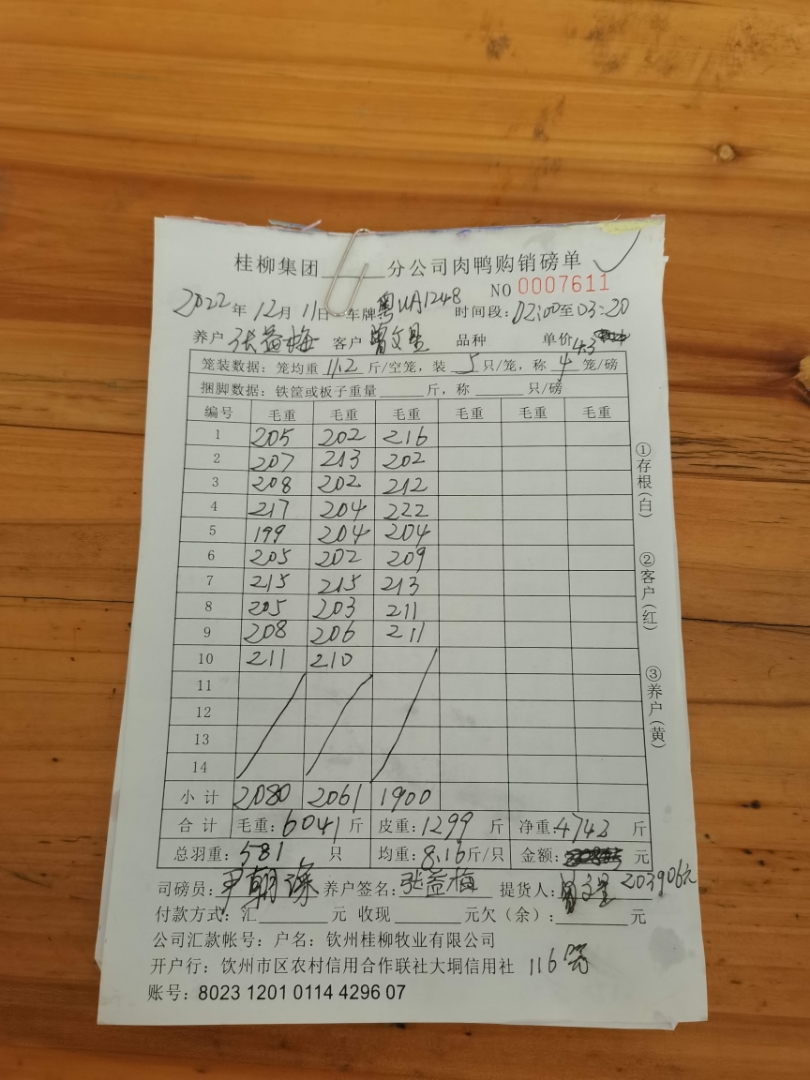 桂柳集团______分公司肉鸭购销磅单
NO 0007611
2022年12月11日 车牌粤UA1248 时间段:02:00至03:20
养户 张益梅 客户 曾文 品种 单价 4.3
笼装数据:笼均重 11.2 斤/空笼,装 5 只/笼,称 4 笼/磅
捆脚数据:铁筐或板子重量______斤,称______只/磅
编号 毛重 毛重 毛重 毛重 毛重 毛重
1 205 202 216
2 207 213 202
3 208 202 212
4 217 204 222
5 199 204 204
6 205 202 209
7 215 215 213
8 205 203 211
9 208 206 211
10 211 210
11
12
13
14
小计 2080 2061 1900
合计 毛重:6041斤 皮重:1299斤 净重:4742斤
总羽重:581只 均重:8.16斤/只 金额: 元
司磅员:尹朝 养户签名:张益梅 提货人:曾文 203906元
付款方式:汇______元 收现______元欠(余):______元
公司汇款帐号:户名:钦州桂柳牧业有限公司
开户行:饮州市区农村信用合作联社大垌信用社 116
账号:8023 1201 0114 4296 07
①存根(白)
②客户(红)
③养户(黄)